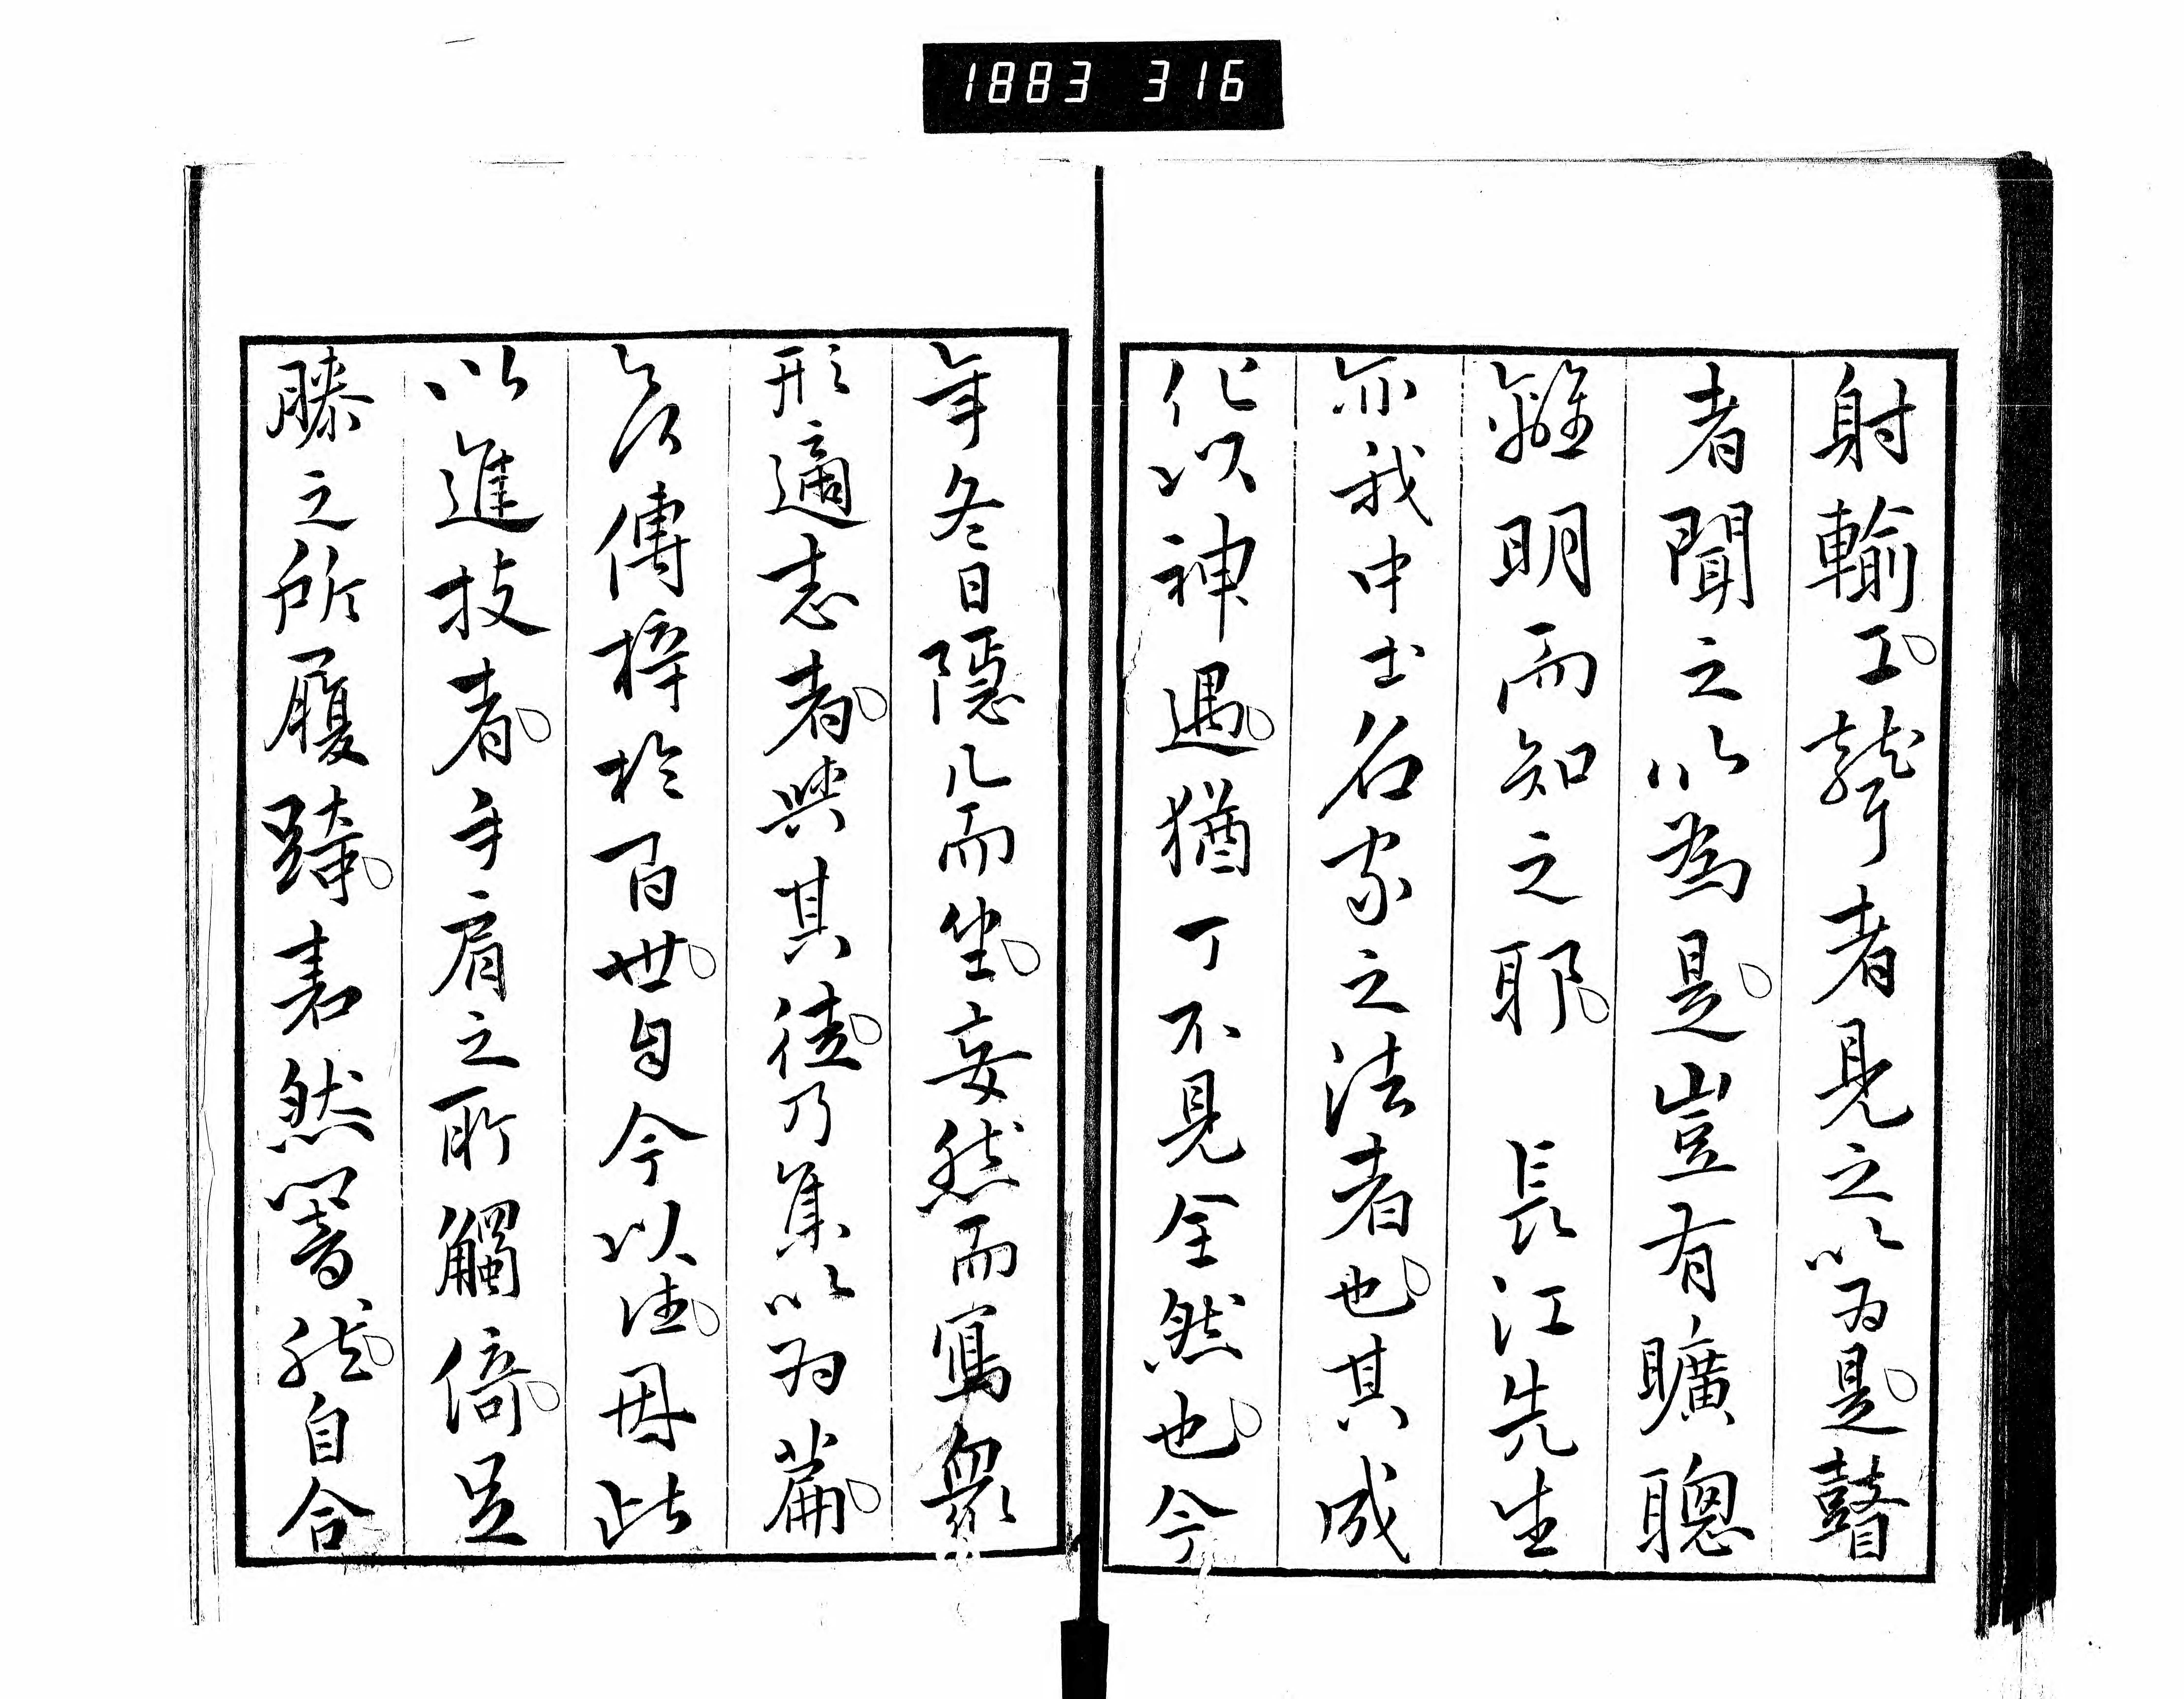 1883 316
射輸工。聾者見之以為是。瞽
者聞之以為是。豈有曠聰
離明而知之耶。長江先生
亦我中土名家之法者也。其成
化以神遇。猶丁不見全然也。今
年冬日隱几而坐。妄然而寫衆
形適志者。與其徒。乃集以為篇。
傳梓於百世。自今以往。因此
以進技者。手肩之所觸倚。足
膝之所履踦。砉然響然。自合